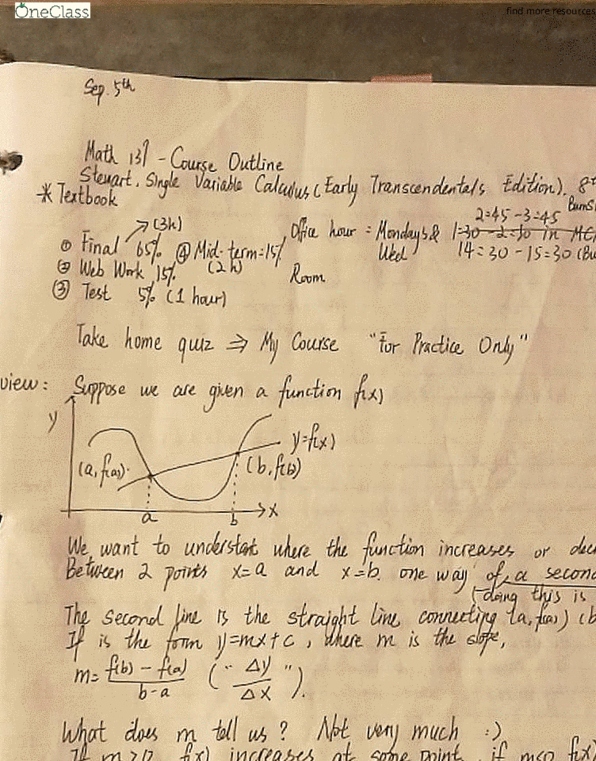 OneClass
find more resources
Sep. 5th
Math 137 - Course Outline
Stewart. Single Variable Calculus (Early Transcendentals Edition). 8th
* Textbook
→ (3h)
① Final 65% ④ Mid-term=15%
② Web Work 15% (2h)
③ Test 5% (1 hour)
Office hour = Mondays &
Wed
2:45-3=45
1=30-2=30 in MC
14=30-15=30
Room
Take home quiz ⇒ My Course "For Practice Only"
view: Suppose we are given a function f(x)
y
y=f(x)
(a, f(a))
(b, f(b))
a b x
We want to understant where the function increases or dec
Between 2 points x=a and x=b. one way of a second
(doing this is
The second line is the straight line connecting (a, f(a)) (b
If is the form y=mx+c, where m is the slope,
m= f(b) - f(a) / b-a (" Δy / Δx ").
What does m tell us? Not very much :)
If m>0, f(x) increases at some point, if m<0 f(x)